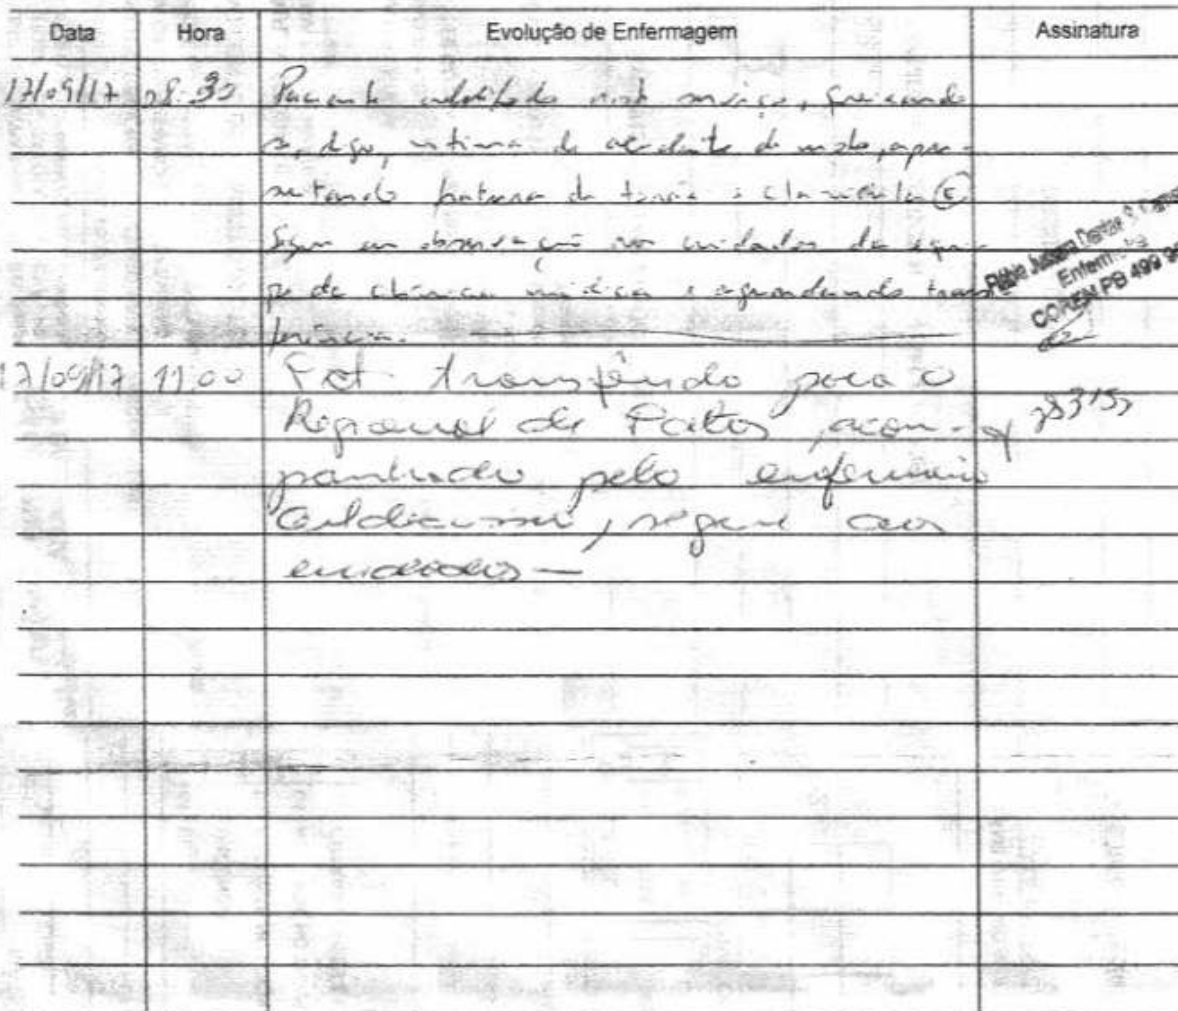 Data Hora Evolução de Enfermagem Assinatura
17/09/17 08:30 Paciente neste serviço,
digo, vitima de acidente de moto, apre-
sentando fratura de e clavicula (E)
Segue em observação nos cuidados da equi-
pe da clinica médica e aguardando trans-
ferência.
Enferm
COREN PB 499 9
17/09/17 11:00 Foi transferido para o
Regional de Patos, acom-
panhado pelo enfermeiro
, segue aos
cuidados —